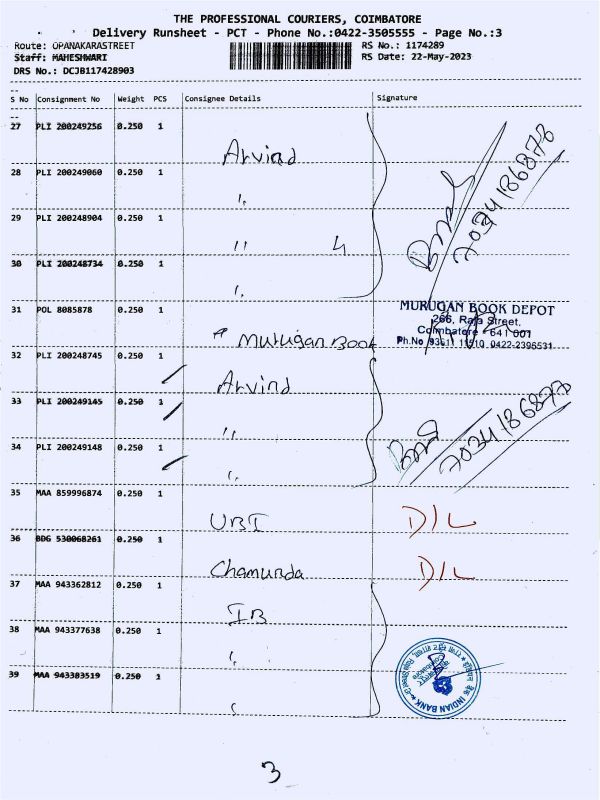 THE PROFESSIONAL COURIERS, COIMBATORE
Delivery Runsheet - PCT - Phone No.:0422-3505555 - Page No.:3
Route: OPANAKARASTREET RS No.: 1174289
Staff: MAHESHWARI RS Date: 22-May-2023
DRS No.: DCJB117428903
S No Consignment No Weight PCS Consignee Details Signature
27 PLI 200249256 0.250 1 Arvind
28 PLI 200249060 0.250 1 "
29 PLI 200248904 0.250 1 " 4
30 PLI 200248734 0.250 1 "
7034186878
31 POL 8085878 0.250 1 Murugan Book
MURUGAN BOOK DEPOT
266, Raja Street,
Coimbatore - 641 001
Ph.No 93611 11510, 0422-2396531
32 PLI 200248745 0.250 1 Arvind
33 PLI 200249145 0.250 1 "
34 PLI 200249148 0.250 1 "
7034186877
35 MAA 859996874 0.250 1 UBI D/L
36 BDG 530068261 0.250 1 Chamunda D/L
37 MAA 943362812 0.250 1 IB
38 MAA 943377638 0.250 1 "
39 MAA 943383519 0.250 1 "
INDIAN BANK
3